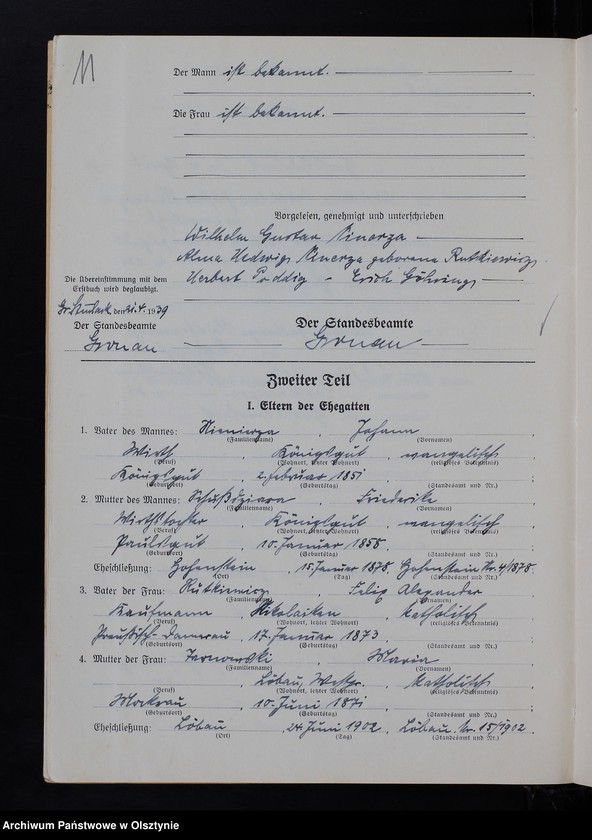 11
Der Mann ist bekannt.
Die Frau ist bekannt.
Vorgelesen, genehmigt und unterschrieben
Wilhelm Gustav
Alma Hedwig geborene Rutkiewicz
Herbert Poddig - Erich
Die Übereinstimmung mit dem
Erstbuch wird beglaubigt.
den 4. 1939
Der Standesbeamte
Gronau
Der Standesbeamte
Gronau
Zweiter Teil
I. Eltern der Ehegatten
1. Vater des Mannes: , Johann ,
(Familienname) (Vornamen)
Wirth , Königsgut , evangelisch ,
(Beruf) (Wohnort, letzter Wohnort) (religiöses Bekenntnis)
Königsgut , 2. Februar 1851 , .
(Geburtsort) (Geburtstag) (Standesamt und Nr.)
2. Mutter des Mannes: , Friederike ,
(Familienname) (Vornamen)
Wirthstochter , Königsgut , evangelisch ,
(Beruf) (Wohnort, letzter Wohnort) (religiöses Bekenntnis)
Paulsgut , 10. Januar 1858 , .
(Geburtsort) (Geburtstag) (Standesamt und Nr.)
Eheschließung: Hohenstein , 15. Januar 1878, Hohenstein Nr. 4/1878.
(Ort) (Tag) (Standesamt und Nr.)
3. Vater der Frau: Rutkiewicz , Felix Alexander ,
(Familienname) (Vornamen)
Kaufmann , Nikolaiken , katholisch ,
(Beruf) (Wohnort, letzter Wohnort) (religiöses Bekenntnis)
Preußisch-Damerau , 17. Januar 1873 , .
(Geburtsort) (Geburtstag) (Standesamt und Nr.)
4. Mutter der Frau: , Maria ,
(Familienname) (Vornamen)
, Löbau, Westpr. , katholisch ,
(Beruf) (Wohnort, letzter Wohnort) (religiöses Bekenntnis)
, 10. Juni 1871 , .
(Geburtsort) (Geburtstag) (Standesamt und Nr.)
Eheschließung: Löbau , 24. Juni 1902, Löbau Nr. 15/1902.
(Ort) (Tag) (Standesamt und Nr.)
Archiwum Państwowe w Olsztynie